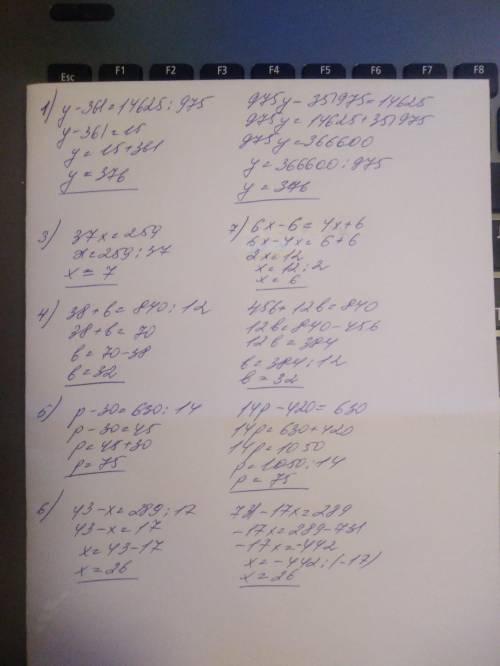 Esc F1 F2 F3 F4 F5 F6 F7 F8
1) y-361=14625:975
y-361=15
y=15+361
y=376
975y-351975=14625
975y=14625+351975
975y=366600
y=366600:975
y=376
3) 37x=259
x=259:37
x=7
7) 6x-6=4x+6
6x-4x=6+6
2x=12
x=12:2
x=6
4) 38+b=840:12
38+b=70
b=70-38
b=32
456+12b=840
12b=840-456
12b=384
b=384:12
b=32
5) p-30=630:14
p-30=45
p=45+30
p=75
14p-420=630
14p=630+420
14p=1050
p=1050:14
p=75
6) 43-x=289:17
43-x=17
x=43-17
x=26
731-17x=289
-17x=289-731
-17x=-442
x=-442:(-17)
x=26